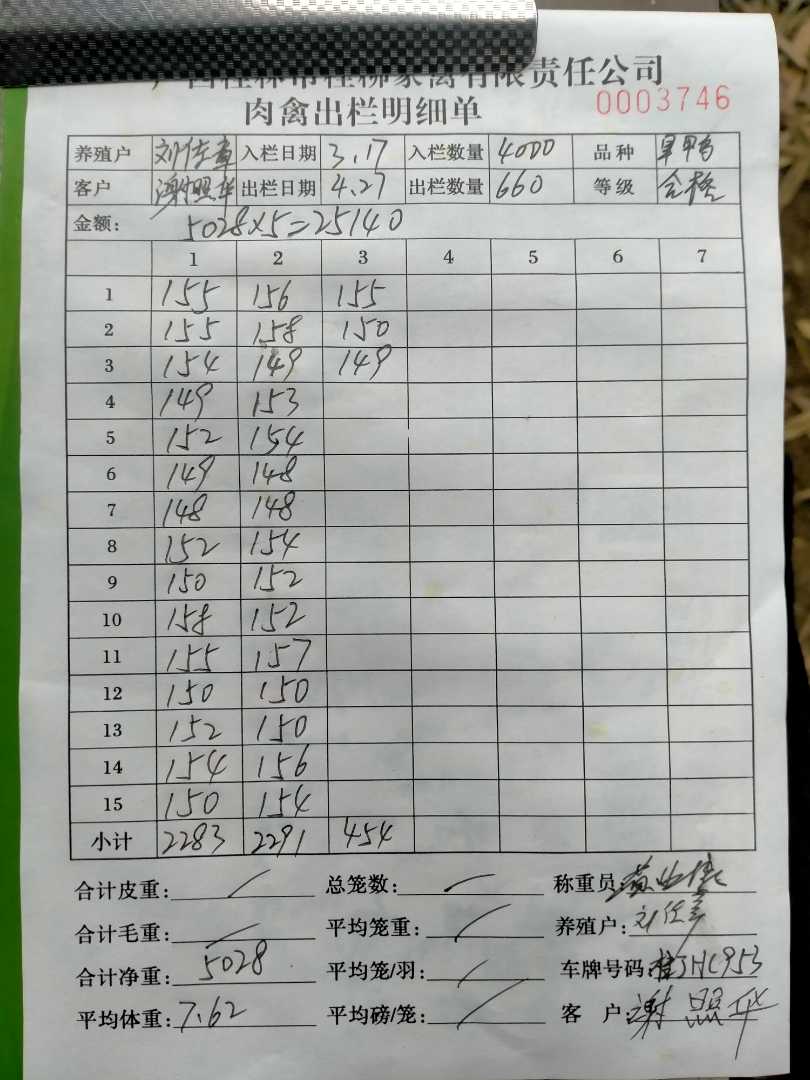 广西桂林市桂柳家禽有限责任公司
肉禽出栏明细单
0003746
养殖户 刘佳 入栏日期 3.17 入栏数量 4000 品种 旱鸭
客户 谢照华 出栏日期 4.27 出栏数量 660 等级 合格
金额: 5028×5=25140
1 2 3 4 5 6 7
1 155 156 155
2 155 158 150
3 154 149 149
4 149 153
5 152 154
6 149 148
7 148 148
8 152 154
9 150 152
10 158 152
11 155 157
12 150 150
13 152 150
14 154 156
15 150 154
小计 2283 2291 454
合计皮重: / 总笼数: / 称重员
合计毛重: / 平均笼重: / 养殖户: 刘佳
合计净重: 5028 平均笼/羽: / 车牌号码: 桂JHC953
平均体重: 7.62 平均磅/笼: / 客 户: 谢照华